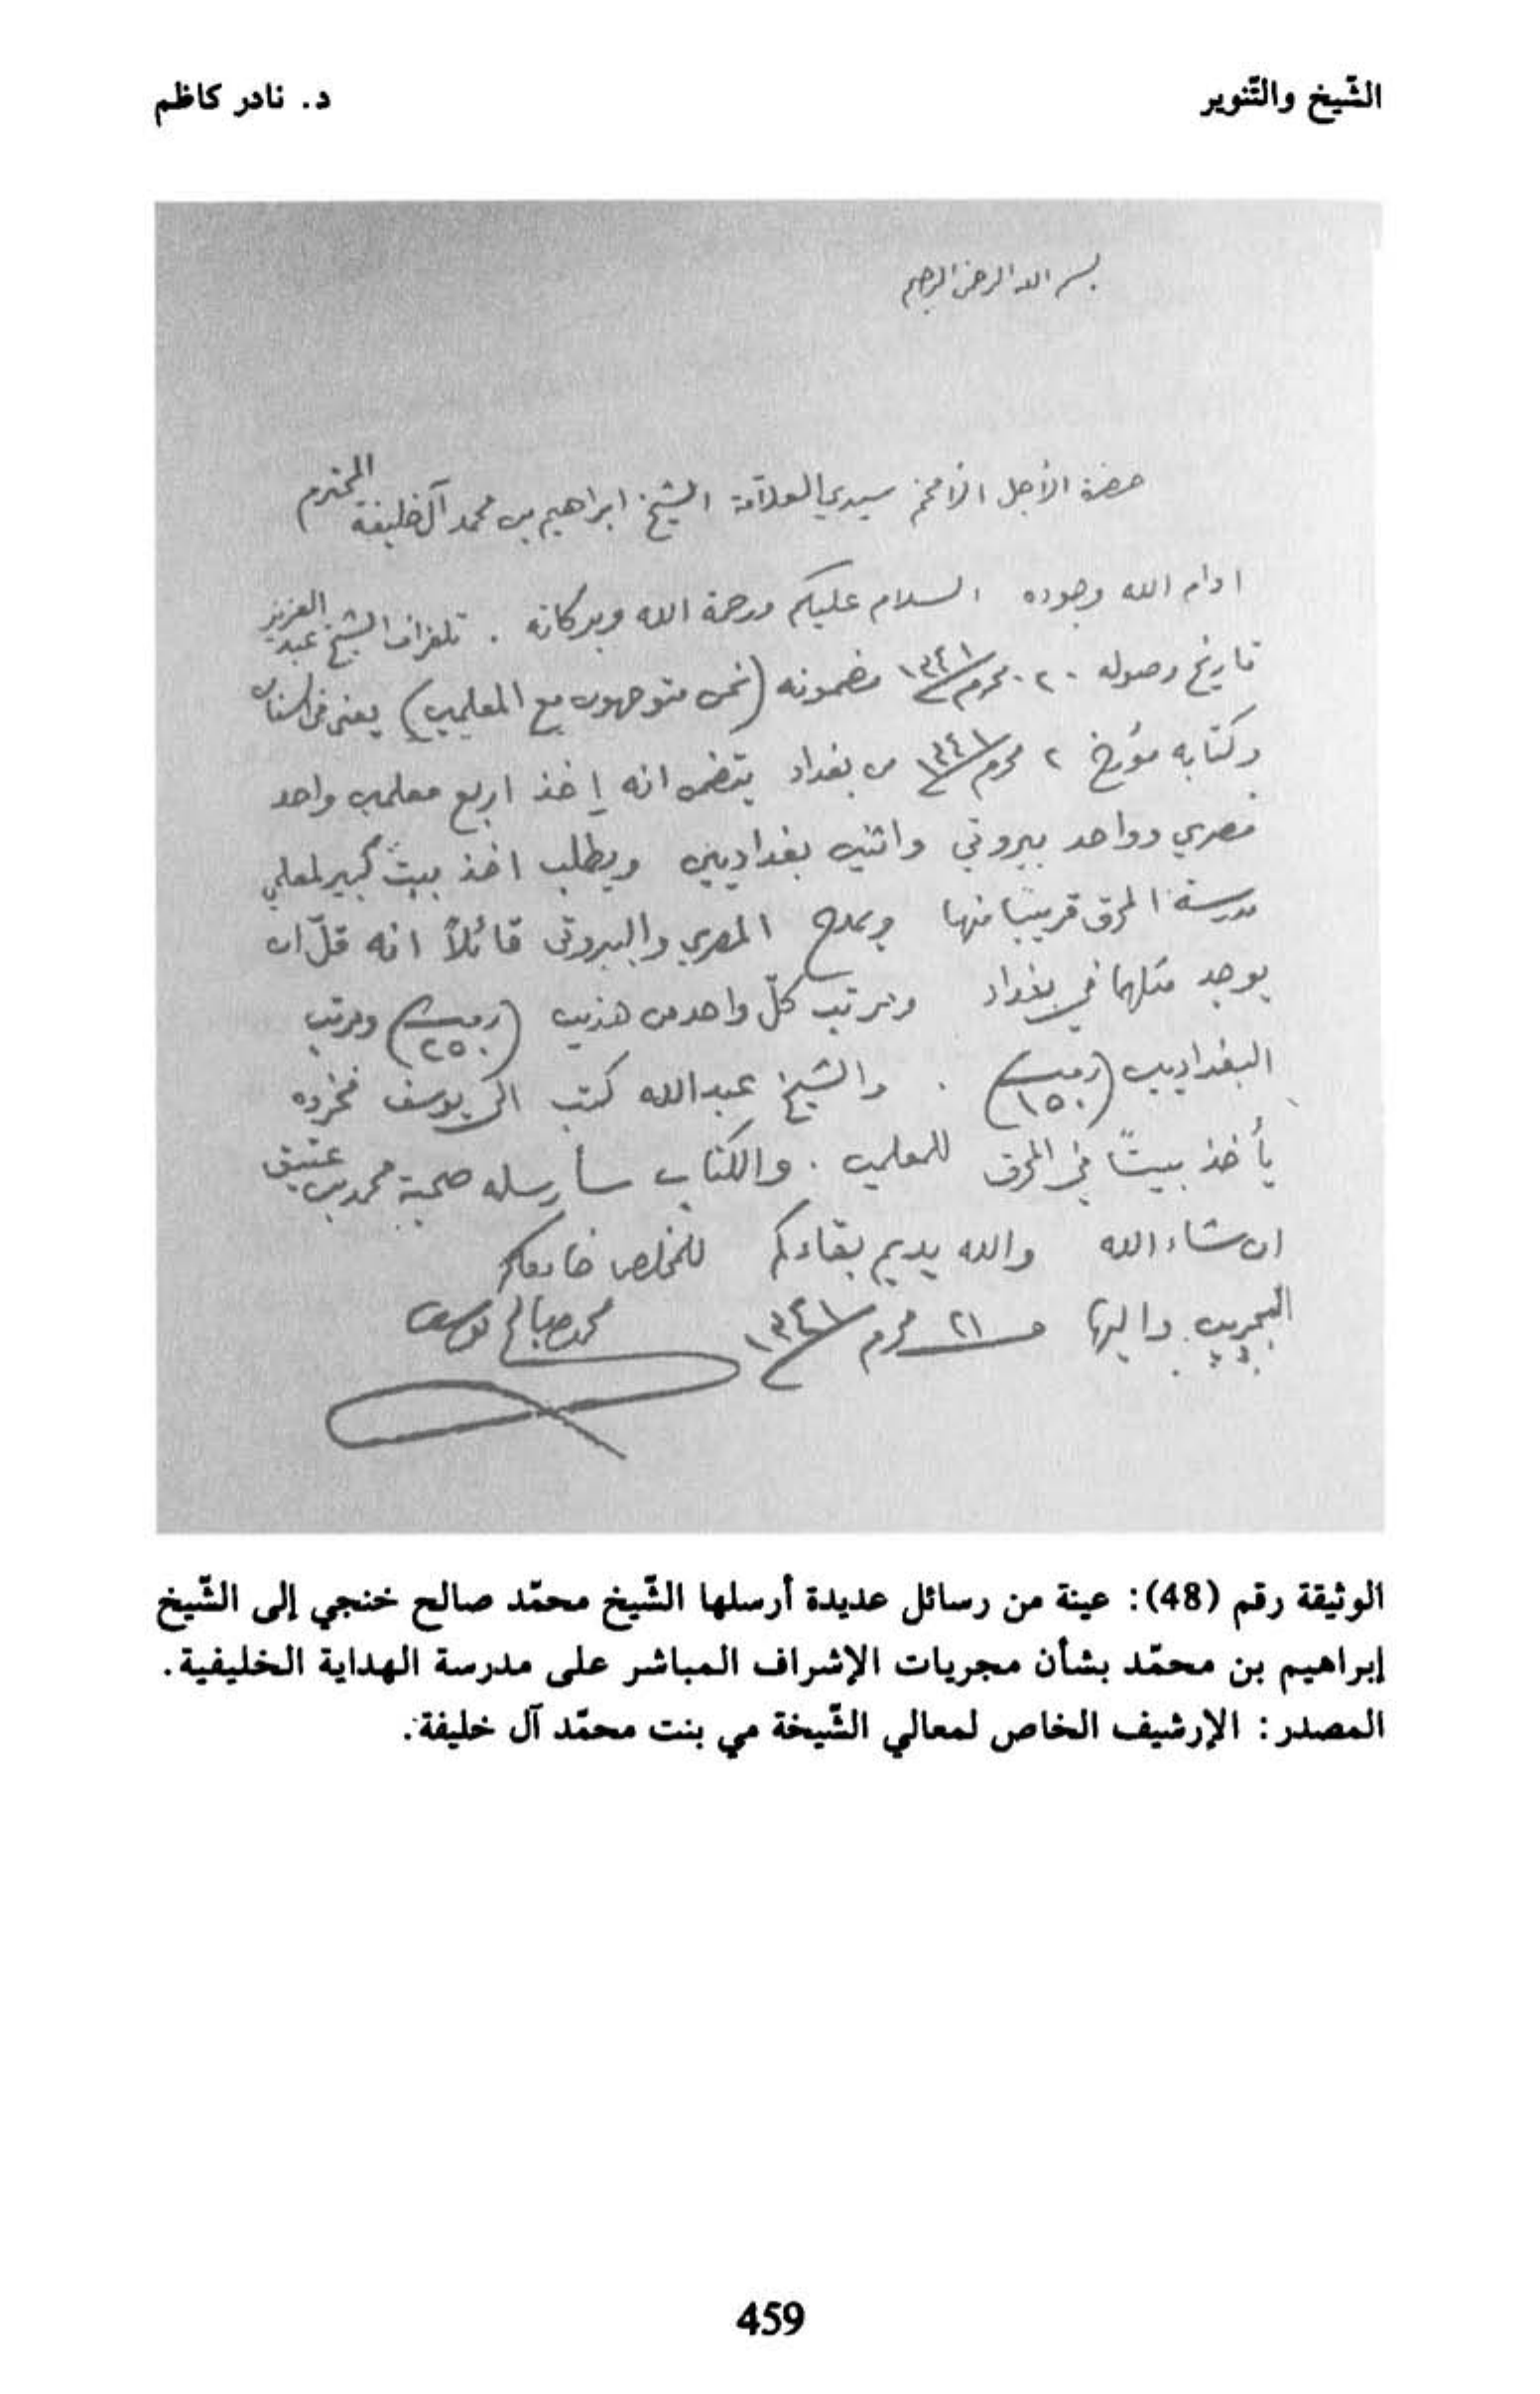 الشّيخ والتّنوير
د. نادر كاظم
بسم الله الرحمن الرحيم
حضرة الأجل الأفخم سيدي العلاّمة الشيخ ابراهيم بن محمد آل خليفة المحترم
ادام الله وجوده السلام عليكم ورحمة الله وبركاته . تلغراف الشيخ عبد العزيز
تاريخ وصوله ٢٠ محرم ١٣٤١ مضمونه (نحن متوجهون مع المعلمين) يعني من
وكتابه مؤرخ ٢ محرم ١٣٤١ من بغداد يتضمن انه اخذ اربع معلمين واحد
مصري وواحد بيروتي واثنين بغداديين ويطلب اخذ بيت كبير لمعلمي
مدرسة المحرق قريبًا منها ويمدح المصري والبيروتي قائلاً انه قلّ ان
يوجد مثلهما في بغداد ومرتب كلّ واحد من هذين (ربيت ٢٥٠) ومرتب
البغداديين (ربيت ١٥٠) . والشيخ عبدالله كتب الى يوسف فخروه
يأخذ بيتًا في المحرق للمعلمين . والكتاب سأرسله صحبة محمد بن عتيق
ان شاء الله والله يديم بقاءكم للمخلص خادمكم
البحرين واليها ٢١ محرم ١٣٤١ محمد صالح يوسف
الوثيقة رقم (48): عينة من رسائل عديدة أرسلها الشّيخ محمّد صالح خنجي إلى الشّيخ
إبراهيم بن محمّد بشأن مجريات الإشراف المباشر على مدرسة الهداية الخليفية.
المصدر: الإرشيف الخاص لمعالي الشّيخة مي بنت محمّد آل خليفة.
459